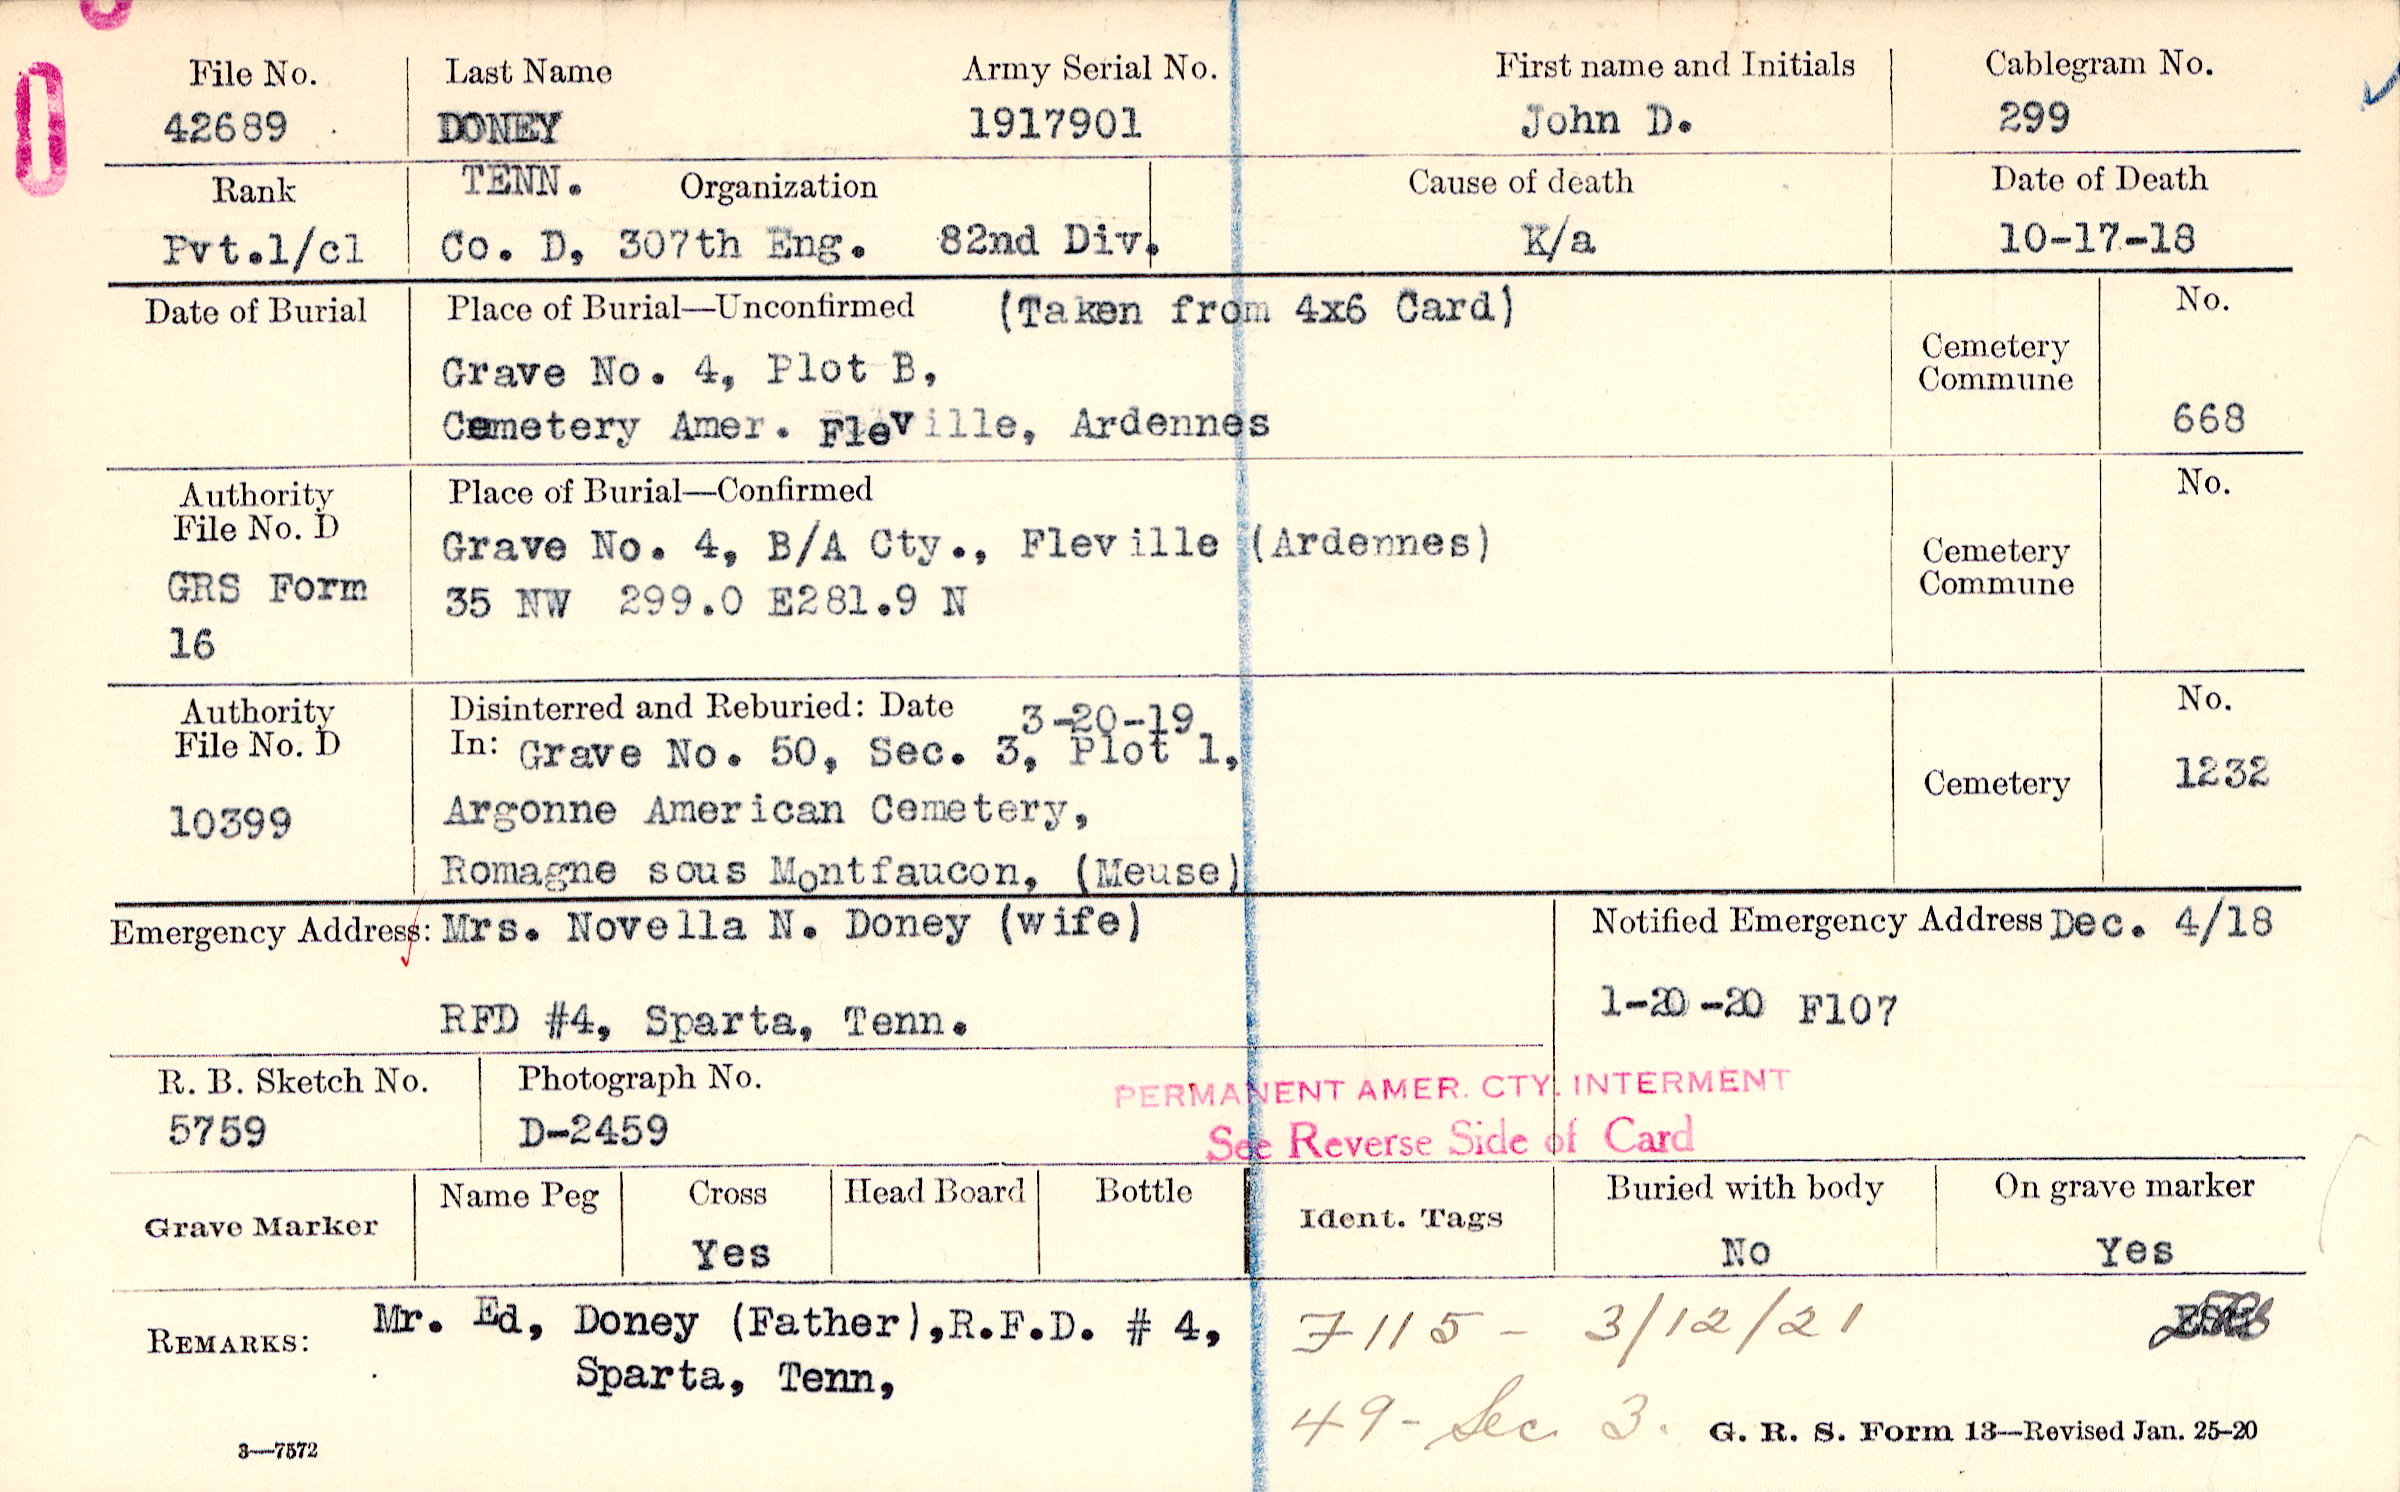 File No. Last Name Army Serial No. First name and Initials Cablegram No.
42689 DONEY 1917901 John D. 299
Rank TENN. Organization Cause of death Date of Death
Pvt.1/cl Co. D, 307th Eng. 82nd Div. K/a 10-17-18
Date of Burial Place of Burial—Unconfirmed (Taken from 4x6 Card) No.
Grave No. 4, Plot B, Cemetery Commune
Cemetery Amer. Fleville, Ardennes 668
Authority File No. D Place of Burial—Confirmed No.
Grave No. 4, B/A Cty., Fleville (Ardennes) Cemetery Commune
GRS Form 35 NW 299.0 E281.9 N
16
Authority File No. D Disinterred and Reburied: Date 3-20-19 No.
In: Grave No. 50, Sec. 3, Plot 1, Cemetery 1232
10399 Argonne American Cemetery,
Romagne sous Montfaucon, (Meuse)
Emergency Address: Mrs. Novella N. Doney (wife) Notified Emergency Address Dec. 4/18
RFD #4, Sparta, Tenn. 1-20-20 F107
R. B. Sketch No. Photograph No. PERMANENT AMER. CTY. INTERMENT
5759 D-2459 See Reverse Side of Card
Grave Marker Name Peg Cross Head Board Bottle Ident. Tags Buried with body On grave marker
Yes No Yes
REMARKS: Mr. Ed, Doney (Father),R.F.D. # 4, F115 - 3/12/21
Sparta, Tenn,
49 - Sec. 3.
3—7572 G. R. S. Form 13—Revised Jan. 25-20